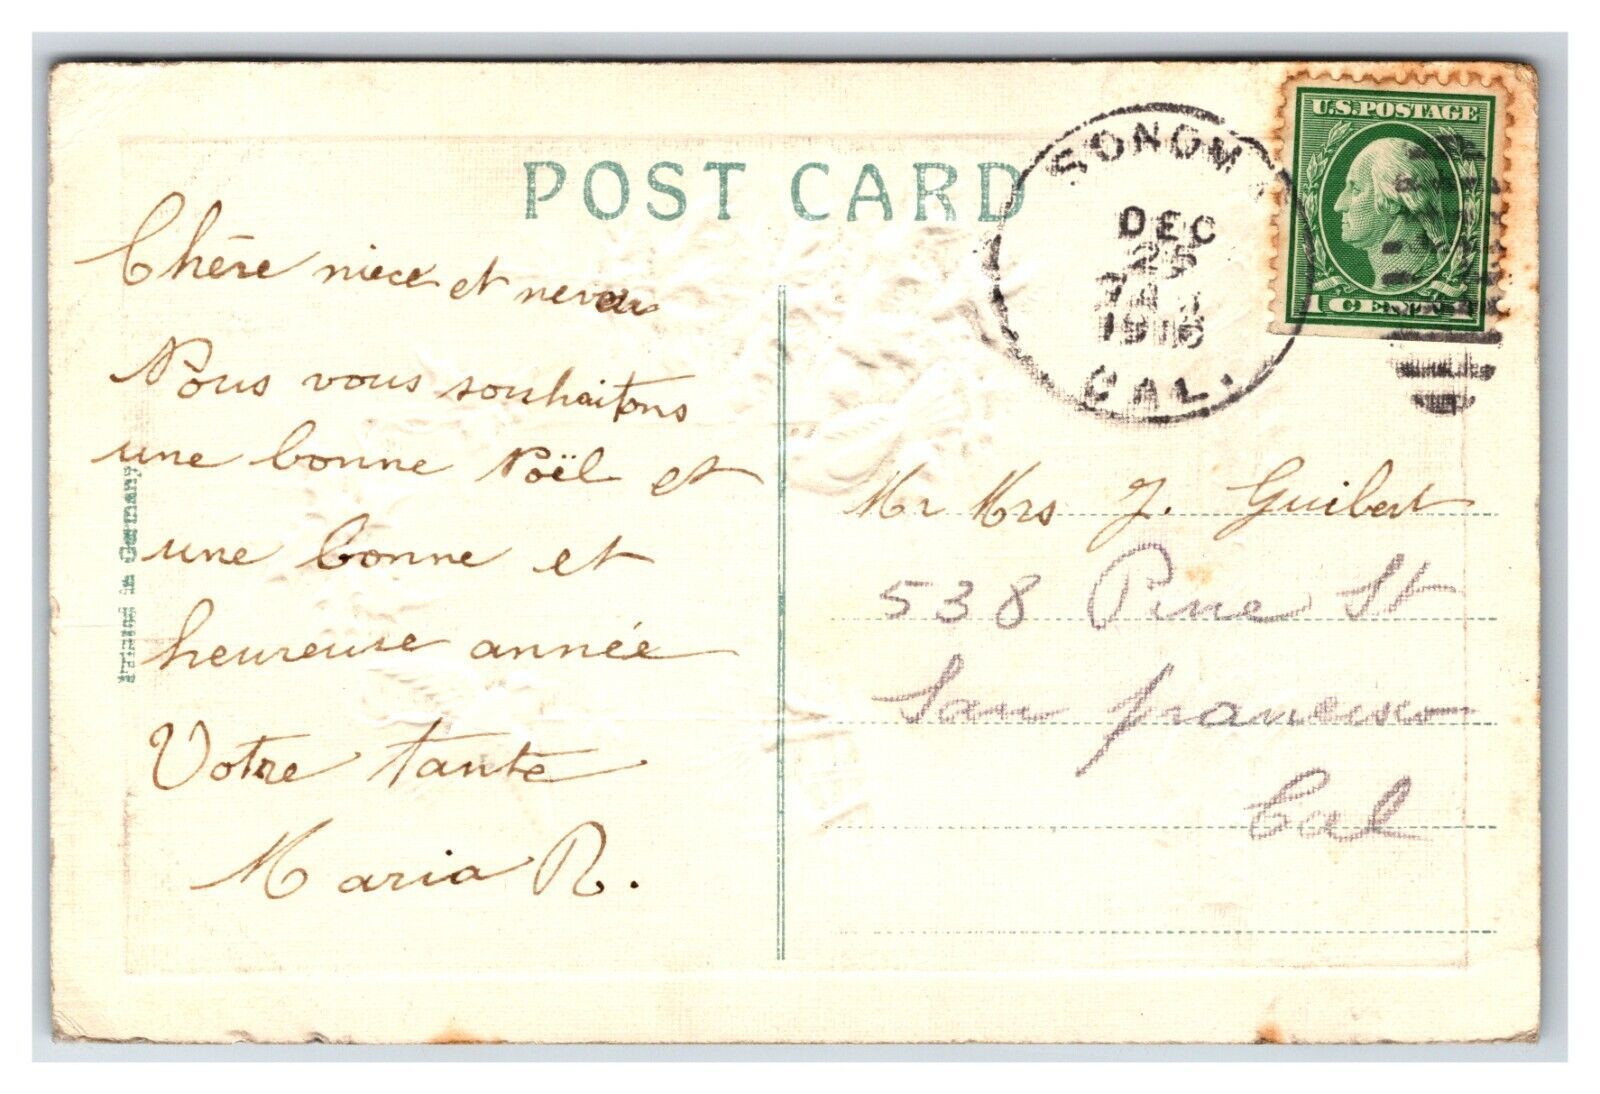 POST CARD
SONOM
DEC
25
1916
CAL.
U.S. POSTAGE
1 CENT
Chère niece et neveu
Nous vous souhaitons
une bonne Noël et
une bonne et
heureuse année
Votre tante
Maria R.
Printed in Germany
Mr Mrs J. Guibert
538 Pine St
San francisco
Cal